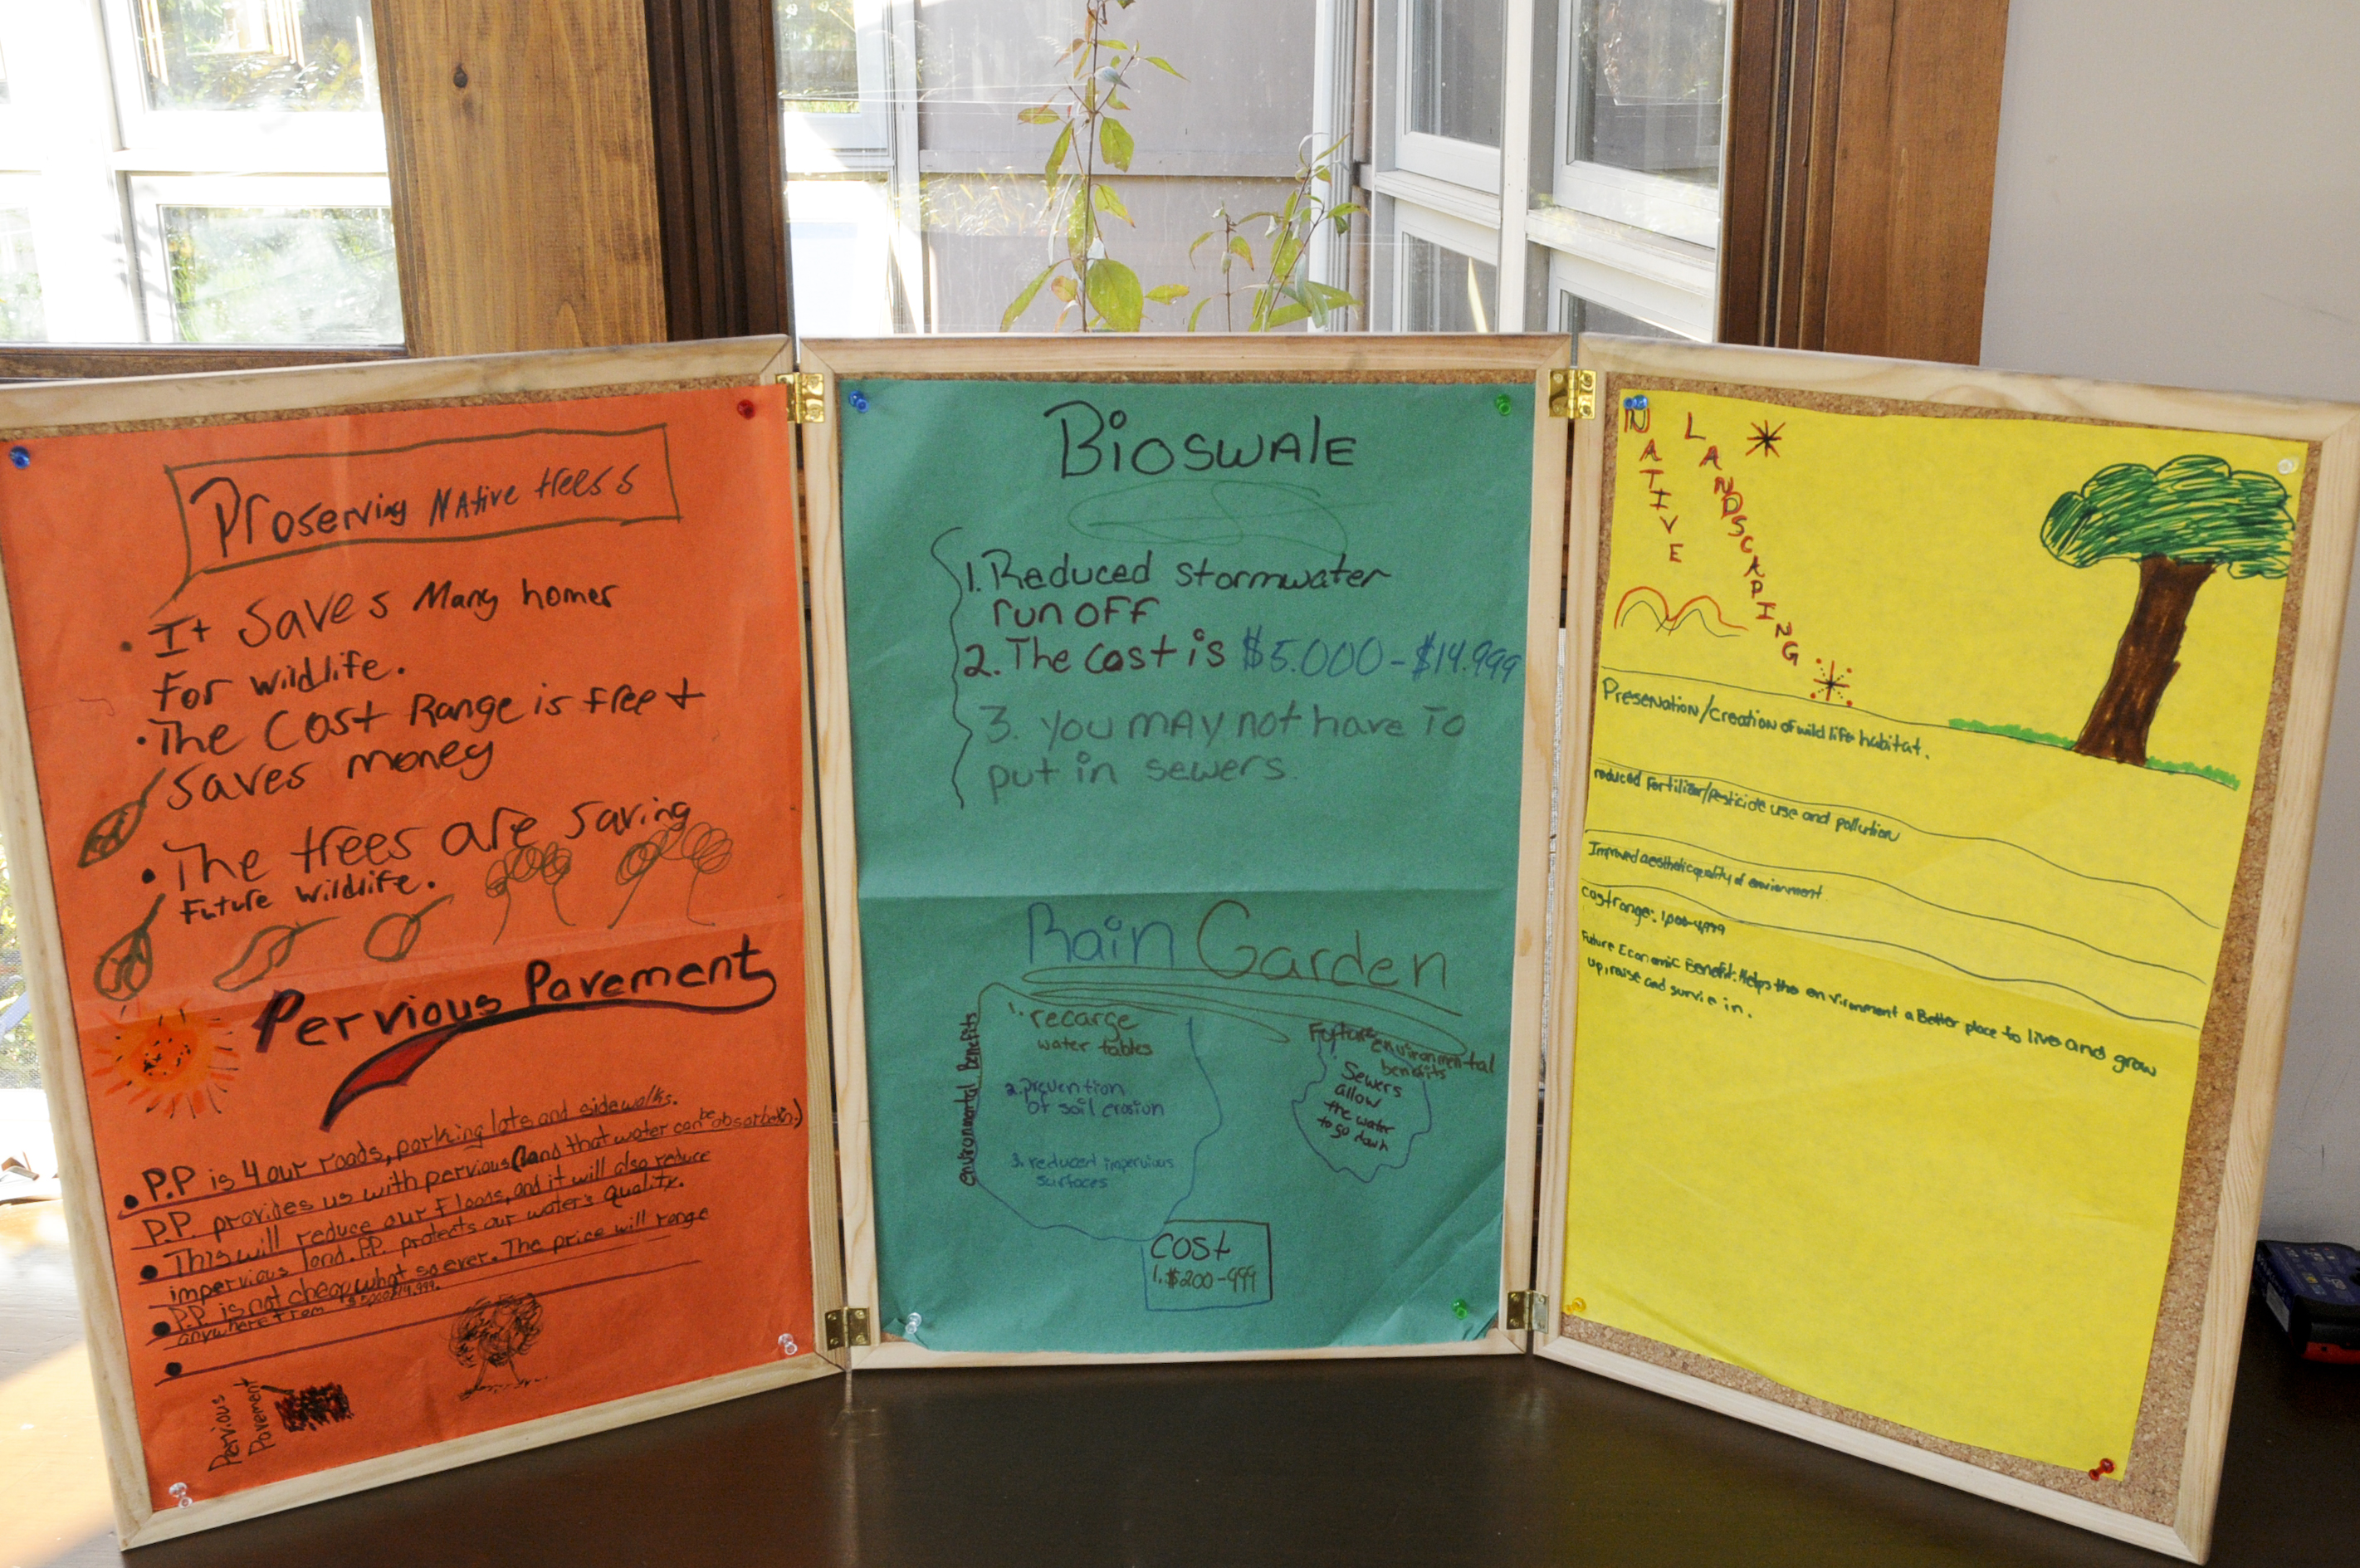 Proserving Native trees s
• It saves Many homes
For wildlife.
• The Cost Range is free +
saves money
• The trees are saving
Future Wildlife.
Pervious Pavement
• P.P is 4 our roads, parking lots and sidewalks.
P.P. provides us with pervious (land that water can be absorbed in.)
• This will reduce our floods, and it will also reduce
impervious land. P.P. protects our water's quality.
• P.P. is not cheap what so ever. The price will range
anywhere from
Pervious
Pavement
Bioswale
1. Reduced stormwater
run off
2. The cost is $5.000-$14.999
3. You may not have to
put in sewers.
Rain Garden
environmental Benefits
1. recarge
water tables
2. prevention
of soil erosion
3. reduced impervious
surfaces
Future environmental
benefits
Sewers
allow
the water
to go down
COST
1. $200-999
NATIVE
LANDSCAPING
Preservation/creation of wild life habitat.
reduced fertilizer/pesticide use and pollution
Improved aesthetic quality of environment
cost range: 1,000-4,999
Future Economic Benefit: Helps the environment a Better place to live and grow
up, raise and survie in.